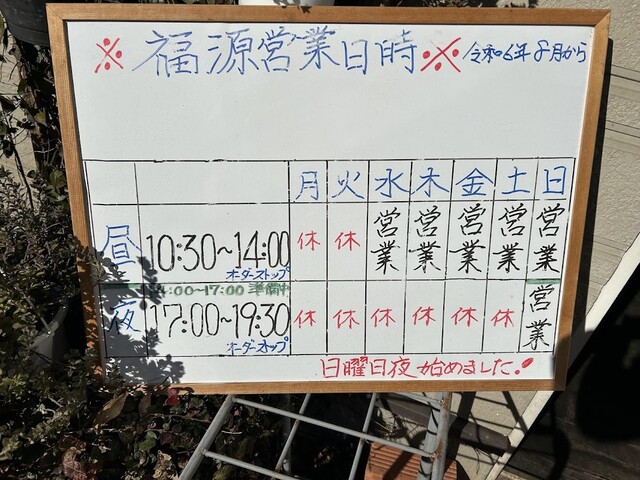 ※福源営業日時※ 令和6年8月から
月 火 水 木 金 土 日
昼 10:30~14:00 休 休 営業 営業 営業 営業 営業
オーダーストップ
14:00~17:00 準備中
夜 17:00~19:30 休 休 休 休 休 休 営業
オーダーストップ
日曜日夜始めました!